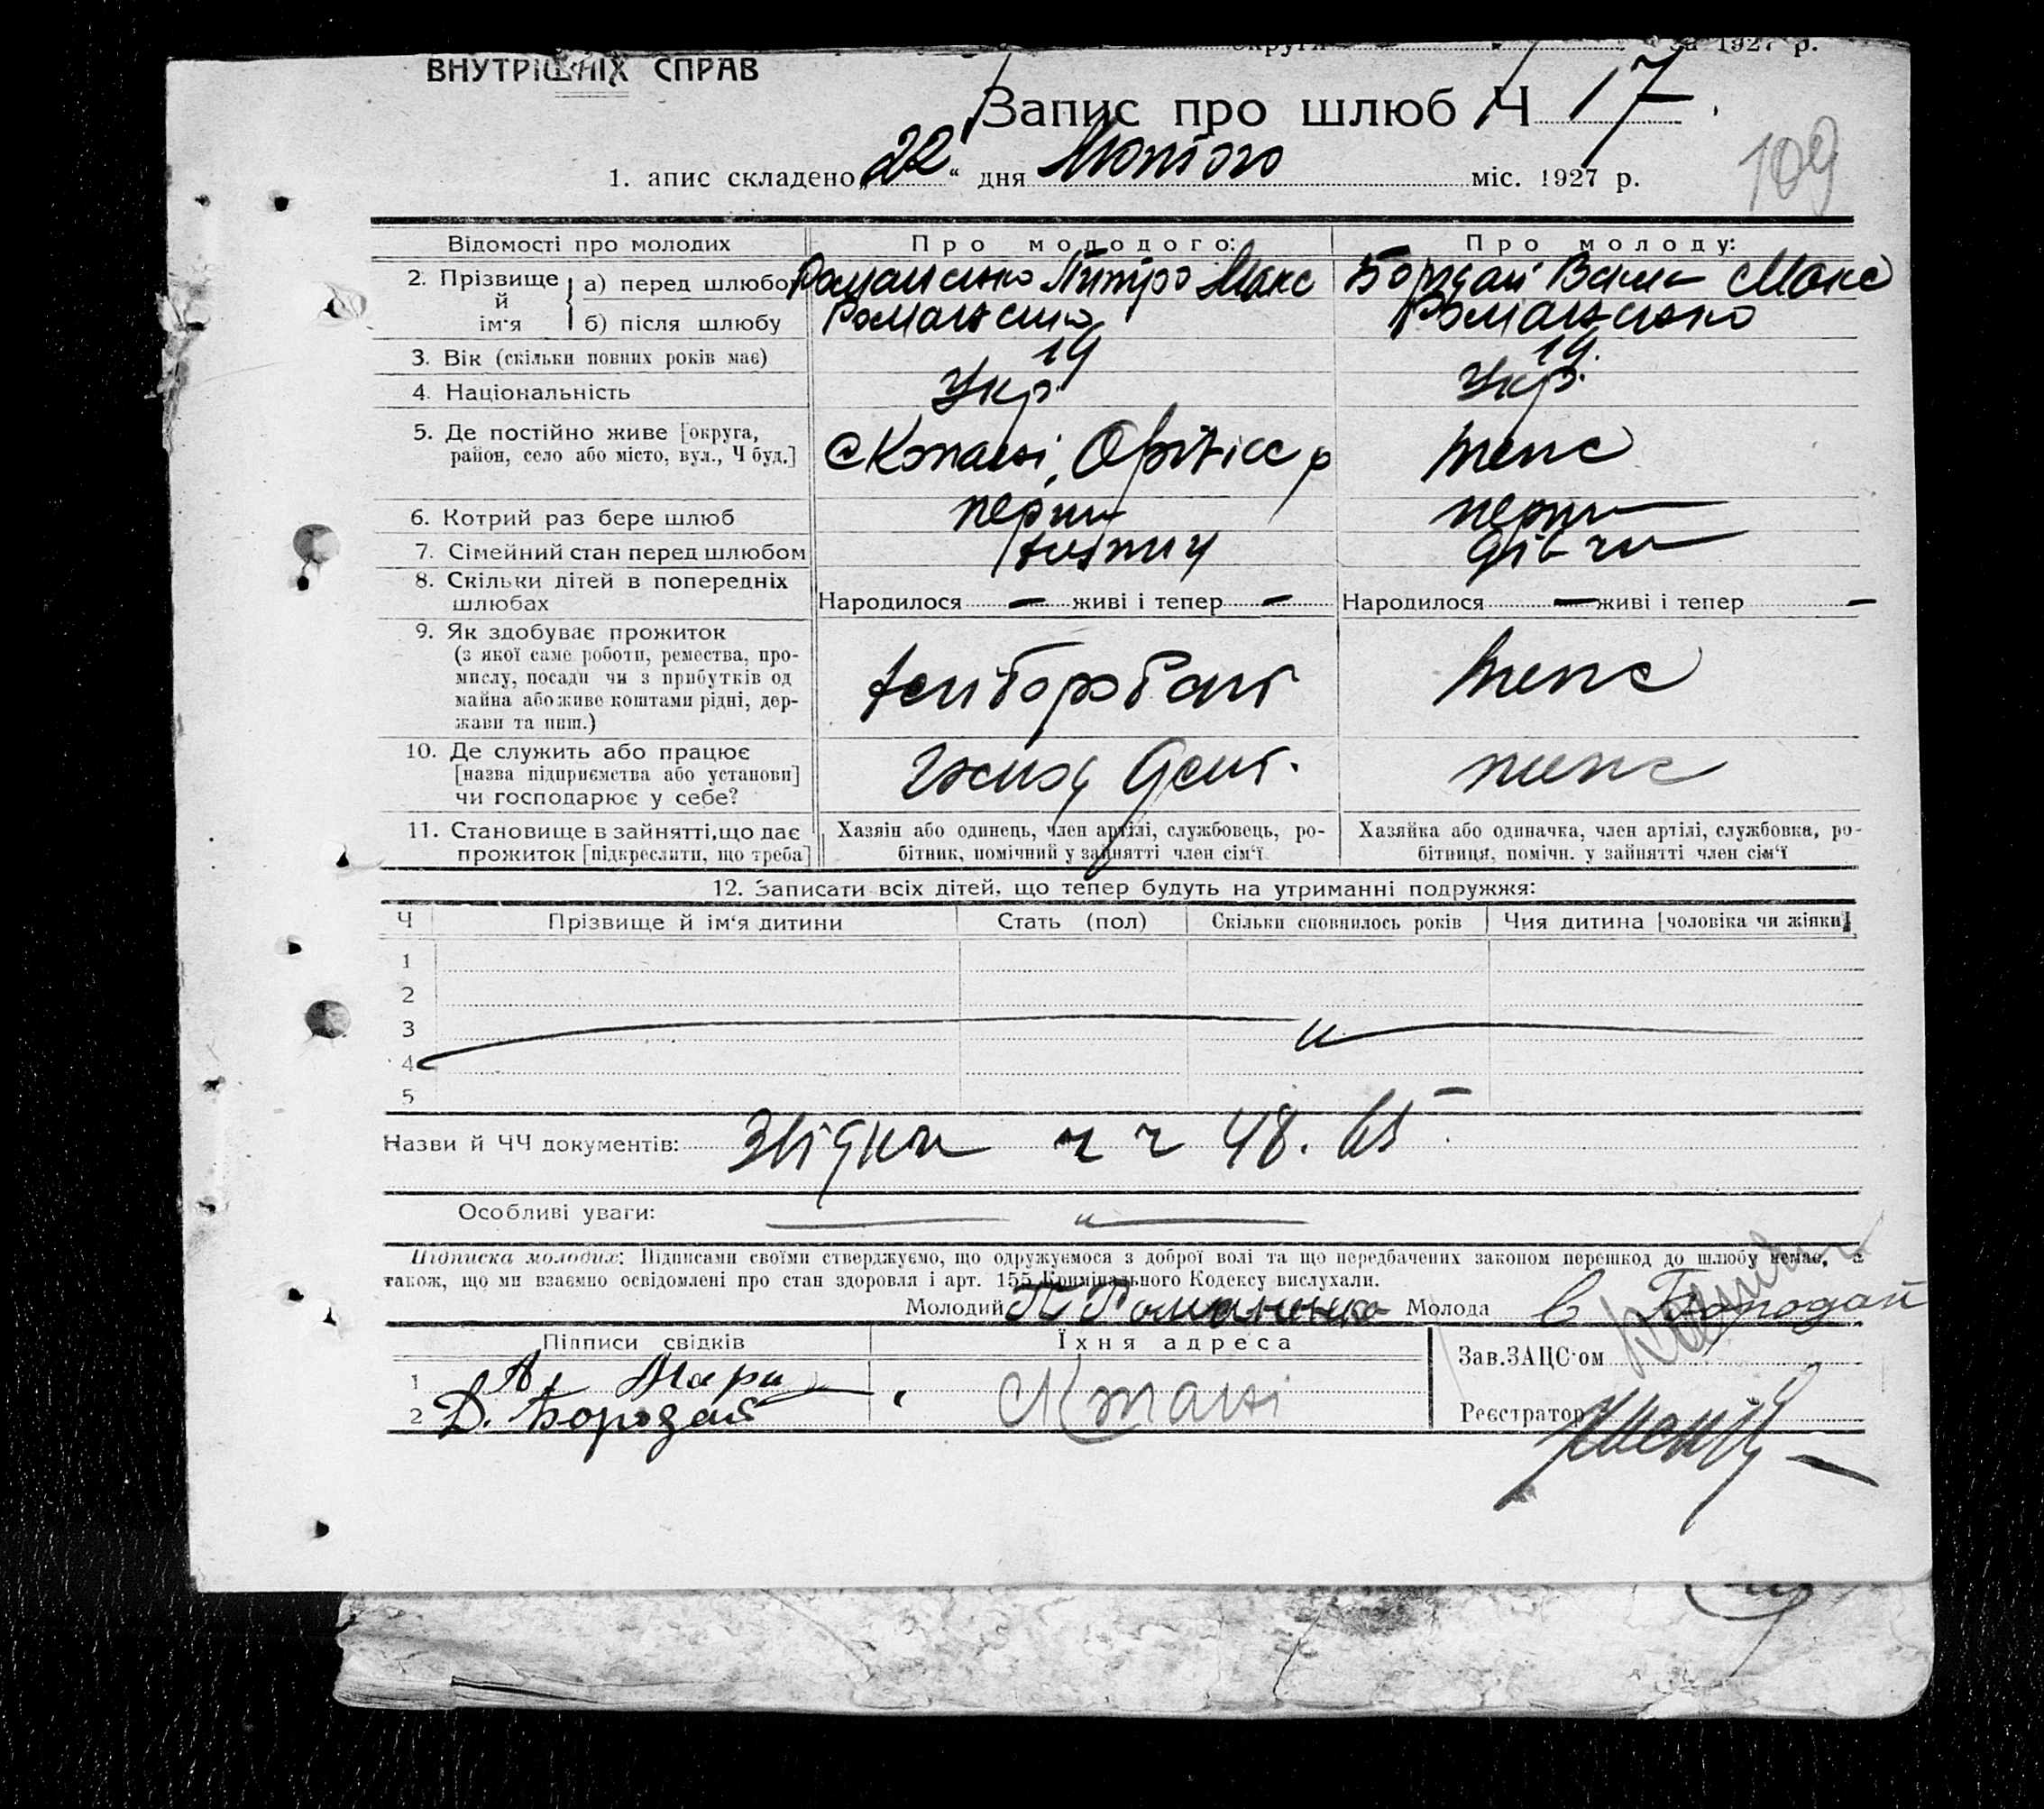 округи за 1927 р.
ВНУТРІШНІХ СПРАВ
Запис про шлюб Ч 17.
109
1. апис складено „22“ дня Лютого міс. 1927 р.
Відомості про молодих Про молодого: Про молоду:
2. Прізвище й ім‘я
а) перед шлюбо Романенко Макс Бородай Макс
б) після шлюбу Романенко Романенко
3. Вік (скільки повних років має) 19 19.
4. Національність Укр. Укр.
5. Де постійно живе [округа, район, село або місто, вул., Ч буд.] с Копані, р теж
6. Котрий раз бере шлюб перш перш
7. Сімейний стан перед шлюбом дівч
8. Скільки дітей в попередніх шлюбах Народилося — живі і тепер — Народилося — живі і тепер —
9. Як здобуває прожиток
(з якої саме роботи, ремества, про-
мислу, посади чи з прибутків од
майна або живе коштами рідні, дер-
жави та инш.)
хлібороб
10. Де служить або працює
[назва підприємства або установи]
чи господарює у себе?
11. Становище в зайнятті, що дає прожиток [підкреслити, що треба]
Хазяін або одинець, член артілі, службовець, ро-
бітник, помічний у зайнятті член сім‘ї
Хазяйка або одиначка, член артілі, службовка, ро-
бітниця, помічн. у зайнятті член сім‘ї
12. Записати всіх дітей, що тепер будуть на утриманні подружжя:
Ч Прізвище й ім‘я дитини Стать (пол) Скільки сповнилось років Чия дитина [чоловіка чи жінки]
1
2
3
4
5
Назви й ЧЧ документів: ч ч 48.
Особливі уваги: — " —
Підписка молодих: Підписами своїми стверджуємо, що одружуємося з доброї волі та що передбачених законом перешкод до шлюбу немає, а
також, що ми взаємно освідомлені про стан здоровля і арт. 155 Кримінального Кодексу вислухали.
Молодий П Романенко Молода В Бородай
Підписи свідків Їхня адреса
Зав. ЗАЦС‘ом
1
2 Д. Бородай
с Копані
Реєстратор